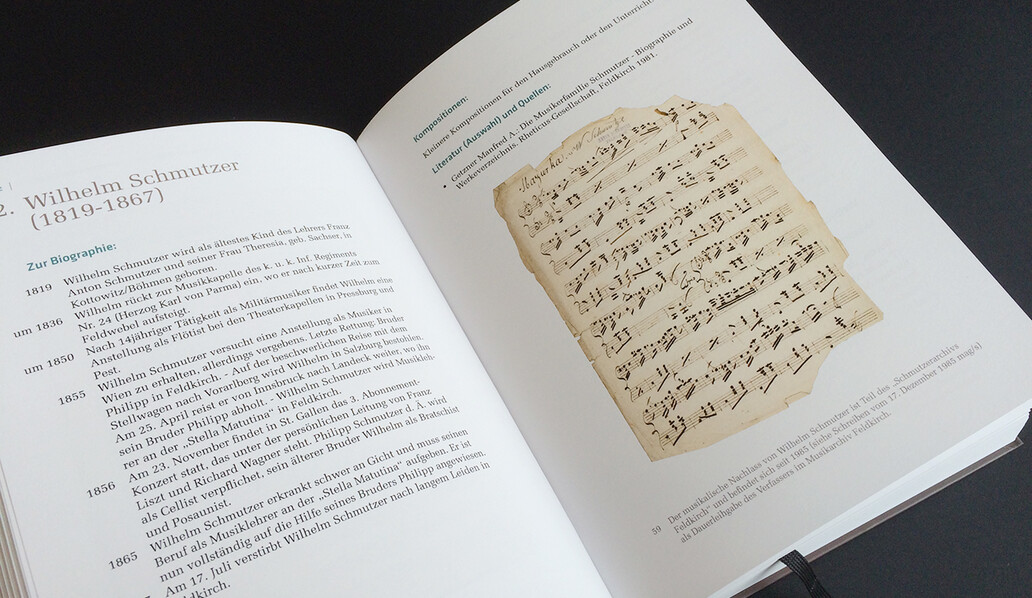 2. Wilhelm Schmutzer
(1819-1867)
Zur Biographie:
1819 Wilhelm Schmutzer wird als ältestes Kind des Lehrers Franz
Anton Schmutzer und seiner Frau Theresia, geb. Sachser, in
Kottowitz/Böhmen geboren.
um 1836 Wilhelm rückt zur Musikkapelle des k. u. k. Inf. Regiments
Nr. 24 (Herzog Karl von Parma) ein, wo er nach kurzer Zeit zum
Feldwebel aufsteigt.
um 1850 Nach 14jähriger Tätigkeit als Militärmusiker findet Wilhelm eine
Anstellung als Flötist bei den Theaterkapellen in Pressburg und
Pest.
1855 Wilhelm Schmutzer versucht eine Anstellung als Musiker in
Wien zu erhalten, allerdings vergebens. Letzte Rettung: Bruder
Philipp in Feldkirch. - Auf der beschwerlichen Reise mit dem
Stellwagen nach Vorarlberg wird Wilhelm in Salzburg bestohlen.
Am 25. April reist er von Innsbruck nach Landeck weiter, wo ihn
sein Bruder Philipp abholt. - Wilhelm Schmutzer wird Musikleh-
rer an der „Stella Matutina“ in Feldkirch.
1856 Am 23. November findet in St. Gallen das 3. Abonnement-
Konzert statt, das unter der persönlichen Leitung von Franz
Liszt und Richard Wagner steht. Philipp Schmutzer d. Ä. wird
als Cellist verpflichet, sein älterer Bruder Wilhelm als Bratschist
und Posaunist.
1865 Wilhelm Schmutzer erkrankt schwer an Gicht und muss seinen
Beruf als Musiklehrer an der „Stella Matutina“ aufgeben. Er ist
nun vollständig auf die Hilfe seines Bruders Philipp angewiesen.
Am 17. Juli verstirbt Wilhelm Schmutzer nach langem Leiden in
Feldkirch.
Kompositionen:
Kleinere Kompositionen für den Hausgebrauch oder den Unterricht.
Literatur (Auswahl) und Quellen:
• Getzner Manfred A.: Die Musikerfamilie Schmutzer - Biographie und
Werkeverzeichnis. Rheticus-Gesellschaft. Feldkirch 1981.
Mazurka. W. Schmutzer
59 Der musikalische Nachlass von Wilhelm Schmutzer ist Teil des „Schmutzerarchivs
Feldkirch“ und befindet sich seit 1985 (siehe Schreiben vom 17. Dezember 1985 mag/s)
als Dauerleihgabe des Verfassers im Musikarchiv Feldkirch.